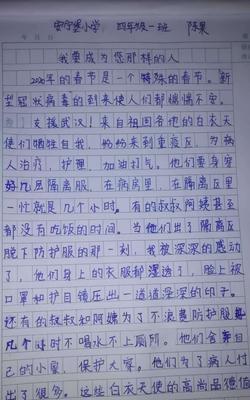 安宁堡小学 四年级一班 陈果
我要成为您那样的人
2020年的春节是一个特殊的春节。新
型冠状病毒的到来使人们都惴惴不安。
支援武汉！来自祖国各地的白衣天
使们牺牲自我，纷纷来到重疫区，为病
人治疗，护理，加油打气。他们要身穿
好几层隔离服，在病房里，在隔离区里
一忙就是几个小时。有的叔叔阿姨甚至
都没有吃饭的时间。当他们出了隔离区
脱下防护服的那一刻，我被深深的感动
了，他们身上的衣服都湿透了，脸上被
口罩和护目镜压出一道道深深的印子。
还有的叔叔和阿姨为了不浪费防护服
几个小时不喝水不上厕所。他们舍自
己的小家，保护大家。他们为了病人付
出了很多。这些白衣天使的高尚品德值